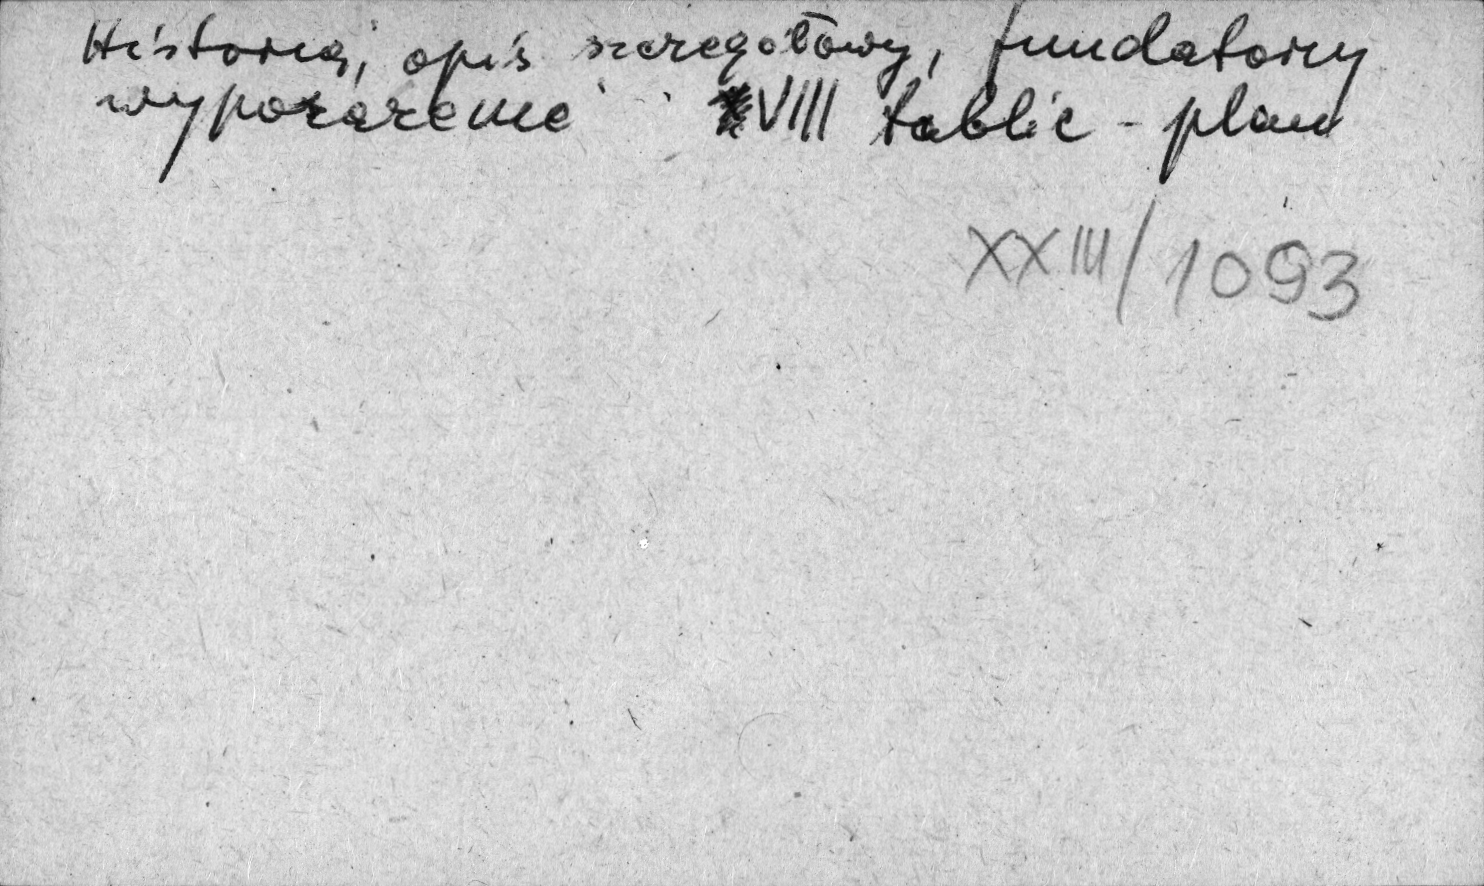 Historia, opis szczegółowy, fundatorzy
wyposażenie VIII tablic - plan
XXIII/1093